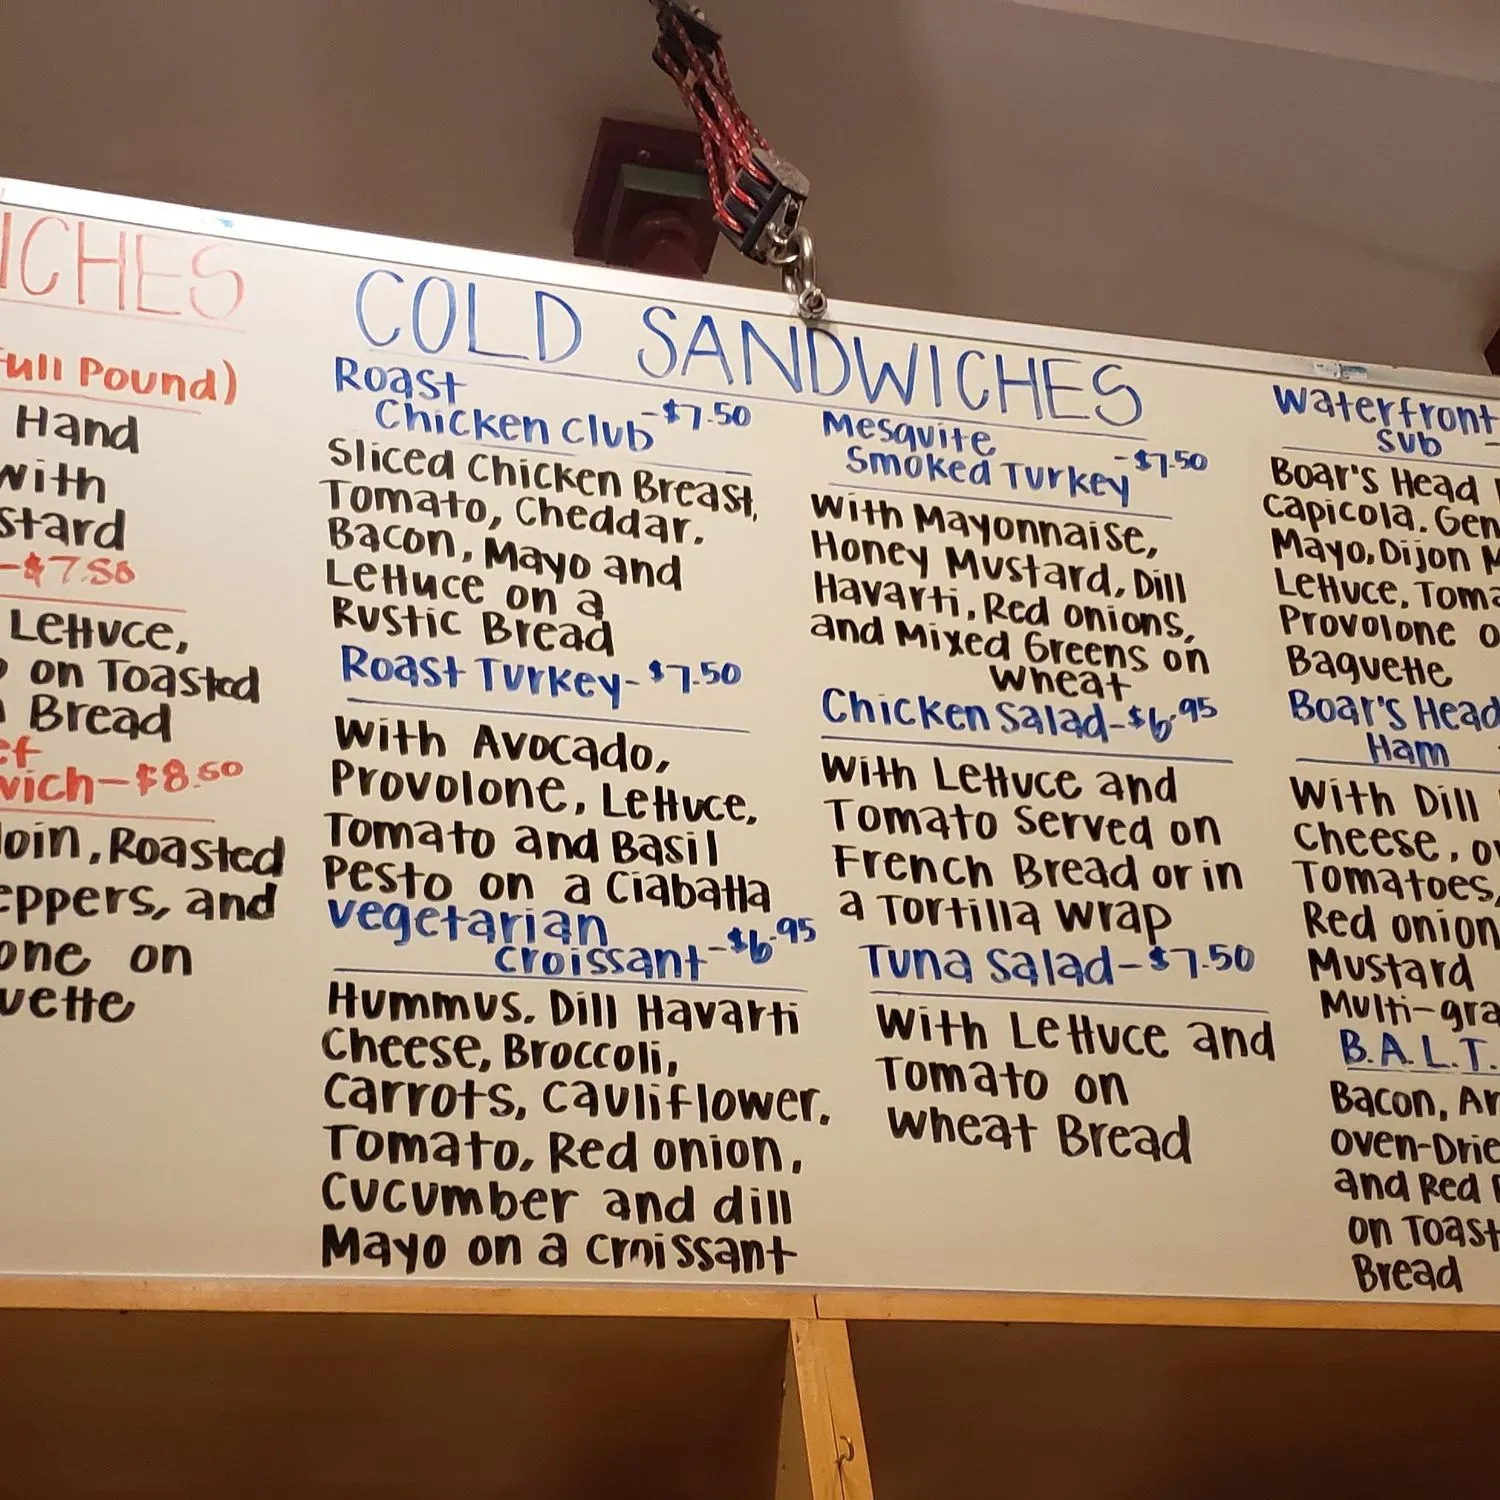 ICHES
Full Pound)
Hand
with
stard
-$7.50
Lettuce,
on Toasted
Bread
-$8.50
Roasted
and
on
COLD SANDWICHES
Roast
Chicken Club-$7.50
Sliced Chicken Breast,
Tomato, Cheddar,
Bacon, Mayo and
Lettuce on a
Rustic Bread
Roast Turkey-$7.50
With Avocado,
Provolone, Lettuce,
Tomato and Basil
Pesto on a Ciabatta
Vegetarian
Croissant-$6.95
Hummus, Dill Havarti
Cheese, Broccoli,
Carrots, Cauliflower,
Tomato, Red onion,
Cucumber and dill
Mayo on a Croissant
Mesquite
Smoked Turkey-$7.50
With Mayonnaise,
Honey Mustard, Dill
Havarti, Red onions,
and Mixed Greens on
Wheat
Chicken Salad-$6.95
With Lettuce and
Tomato Served on
French Bread or in
a Tortilla Wrap
Tuna Salad-$7.50
With Lettuce and
Tomato on
Wheat Bread
Waterfront
Sub -
Boar's Head
Capicola, Gen
Mayo, Dijon M
Lettuce, Toma
Provolone o
Baguette
Boar's Head
Ham
With Dill
Cheese, o
Tomatoes,
Red onion
Mustard
Multi-gra
B.A.L.T.
Bacon, Ar
oven-Drie
and Red
on Toast
Bread